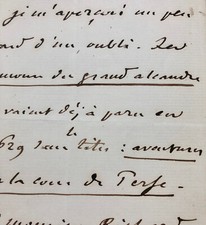 je m'aperçois un peu
tard d'un oubli. Les
du grand alexandre
avaient déjà paru en
629 sous le titre : aventures
à la cour de Perse.
Richard